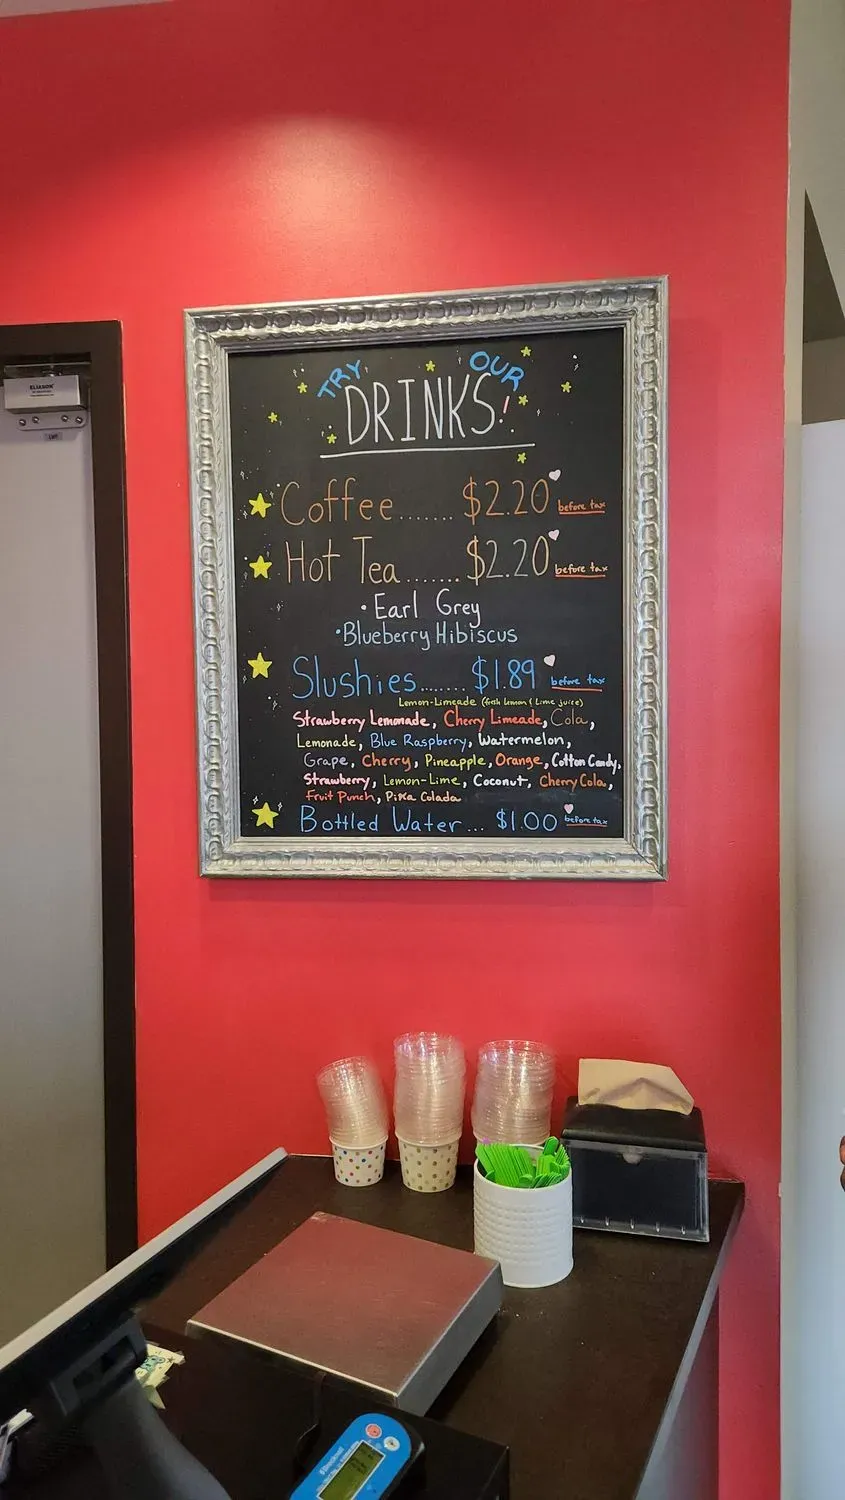 TRY OUR
DRINKS!
Coffee....... $2.20 before tax
Hot Tea....... $2.20 before tax
• Earl Grey
• Blueberry Hibiscus
Slushies....... $1.89 before tax
Lemon-Limeade (fresh lemon & lime juice)
Strawberry Lemonade, Cherry Limeade, Cola,
Lemonade, Blue Raspberry, Watermelon,
Grape, Cherry, Pineapple, Orange, Cotton Candy,
Strawberry, Lemon-Lime, Coconut, Cherry Cola,
Fruit Punch, Piña Colada
Bottled Water... $1.00 before tax
ELIASON